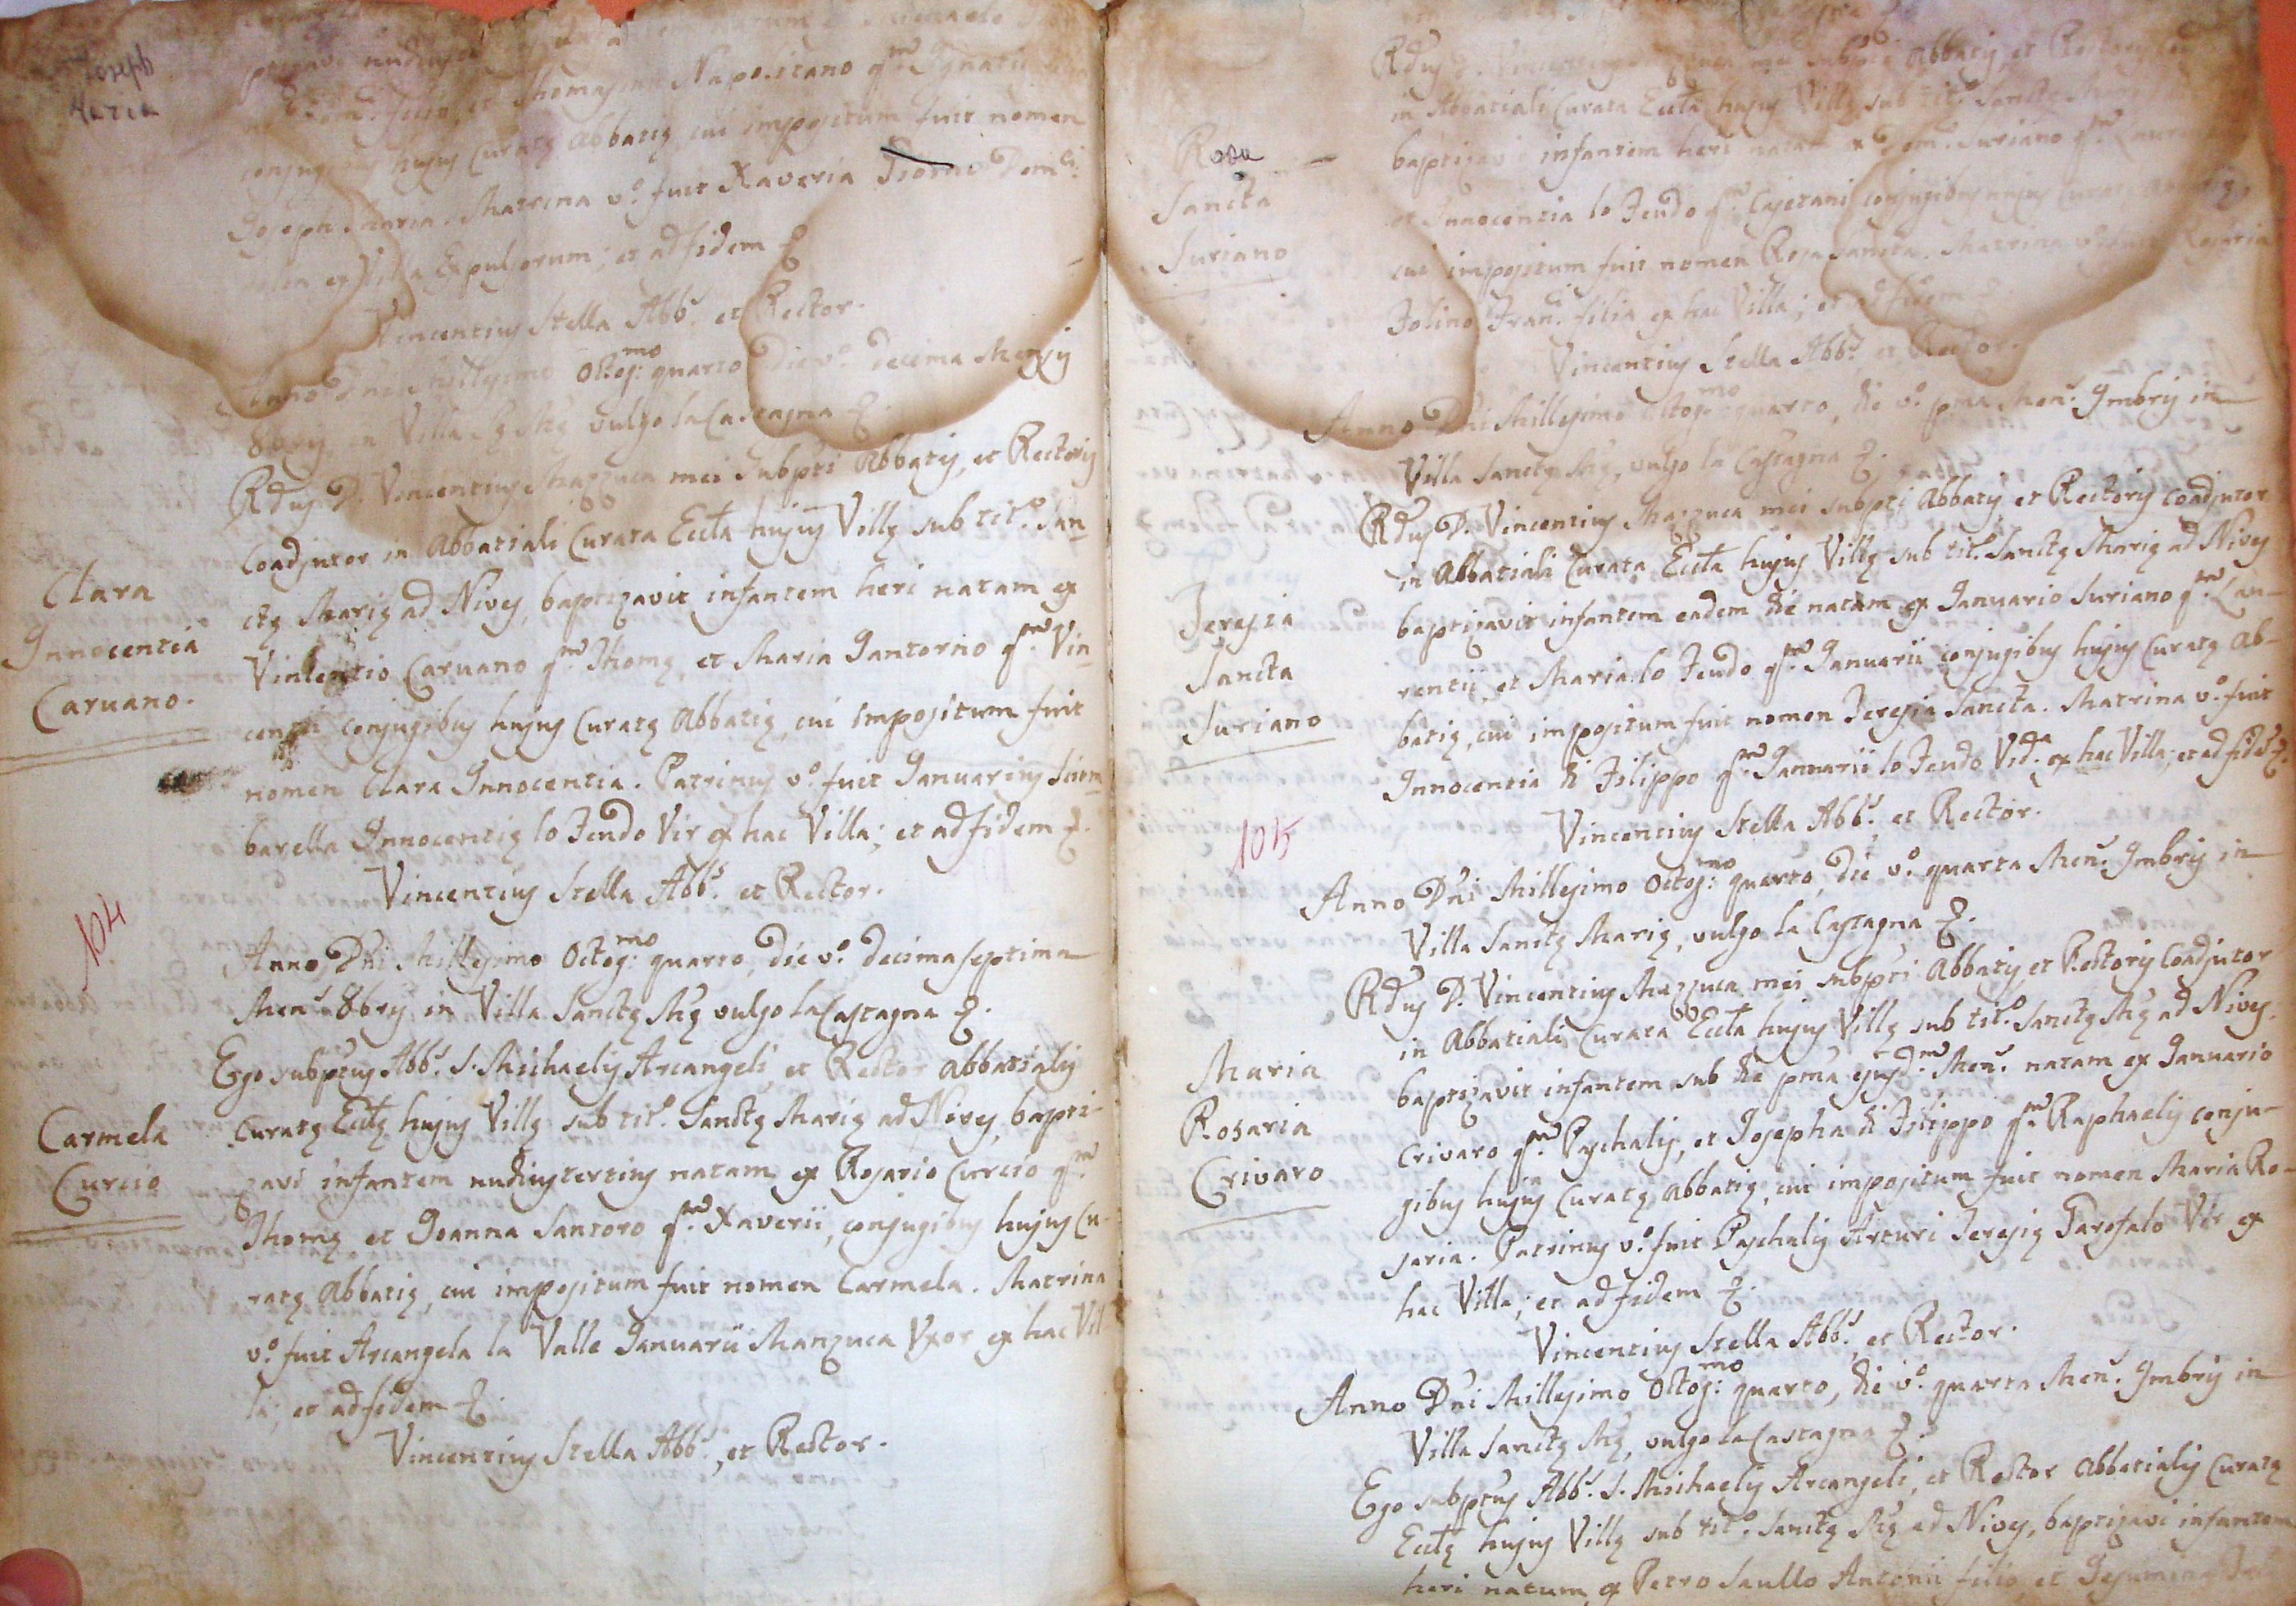 Joseph
Maria
Thomasina Napolitano qm. Ignatii
conjugibus hujus Curatę Abbatię, cui impositum fuit nomen
Joseph Maria. Matrina vo. fuit Xaveria
ex Villa Expulsorum; et ad fidem &.
Vincentius Stella Abbs. et Rector.
Anno Dni Millesimo Octog:mo quarto Die vo. decima Mensis
8bris in Villa Sę Mę vulgo la Castagna &.
Rdus D. Vincentius Mazzuca mei subpti Abbatis, et Rectoris
Coadjutor in Abbatiali Curata Eccta hujus Villę sub tito. San-
Clara
Innocentia
Caruano.
ctę Marię ad Nives, baptizavit infantem heri natam ex
Vincentio Caruano qm. Thomę, et Maria Iantorno qm. Vin-
centii conjugibus hujus Curatę Abbatię, cui impositum fuit
nomen Clara Innocentia. Patrinus vo. fuit Januarius Sciam-
barella Innocentię lo Feudo Vir ex hac Villa; et ad fidem &.
Vincentius Stella Abbs. et Rector.
104
Anno Dni Millesimo Octog:mo quarto, die vo. decima septima
Mens. 8bris in Villa Sanctę Mę vulgo la Castagna &.
Ego subptus Abbs. S. Michaelis Arcangeli, et Rector Abbatialis
Carmela
Curcio
Curatę Ecctę hujus Villę sub tito. Sanctę Marię ad Nives, bapti-
zavi infantem nudiustertius natam ex Rosario Curcio qm.
Thomę et Joanna Santoro qm. Xaverii, conjugibus hujus Cu-
ratę Abbatię, cui impositum fuit nomen Carmela. Matrina
vo. fuit Arcangela la Valle Januarii Manzuca Uxor ex hac Vil
la; et ad fidem &.
Vincentius Stella Abbs., et Rector.
Rdus D. Vincentius mei subpti Abbatis, et Rectoris
in Abbatiali Curata Eccta hujus Villę sub tito. Sanctę
Rosa
Sancta
Suriano
baptizavit infantem heri natam ex Dom. Suriano qm.
et Innocentia lo Feudo qm. Cajetani conjugibus hujus
cui impositum fuit nomen Rosa Sancta. Matrina vo. fuit Rosaria
Folino Franc. filia ex hac Villa; et ad fidem
Vincentius Stella Abbs. et Rector.
Anno Dni Millesimo Octog:mo quarto, die vo. pma Mens. 9mbris in
Villa Sanctę Mę, vulgo la Castagna &.
Rdus D. Vincentius Mazzuca mei subpti Abbatis et Rectoris Coadjutor
in Abbatiali Curata Eccta hujus Villę sub tito. Sanctę Marię ad Nives
Teresia
Sancta
Suriano
baptizavit infantem eadem die natam ex Januario Suriano qm. Lau-
rentii, et Maria lo Feudo qm. Januarii conjugibus hujus Curatę Ab-
batię, cui impositum fuit nomen Teresia Sancta. Matrina vo. fuit
Innocentia di Filippo qm. Januarii lo Feudo Vid.a ex hac Villa; et ad fidem &.
Vincentius Stella Abbs. et Rector.
105
Anno Dni Millesimo Octog:mo quarto, die vo. quarta Mens. 9mbris in
Villa Sanctę Marię, vulgo la Castagna &.
Rdus D. Vincentius Mazzuca mei subpti Abbatis, et Rectoris Coadjutor
in Abbatiali Curata Eccta hujus Villę sub tito. Sanctę Mę ad Nives,
Maria
Rosaria
Crivaro
baptizavit infantem sub die pma ejusd.m Mens. natam ex Januario
Crivaro qm. Paschalis, et Josepha di Filippo qm. Raphaelis conju-
gibus hujus Curatę Abbatię, cui impositum fuit nomen Maria Ro-
saria. Patrinus vo. fuit Paschalis Arturi Teresię Garofalo Vir ex
hac Villa; et ad fidem &.
Vincentius Stella Abbs. et Rector.
Anno Dni Millesimo Octog:mo quarto, die vo. quarta Mens. 9mbris in
Villa Sanctę Mę, vulgo la Castagna &.
Ego subptus Abbs. S. Michaelis Arcangeli, et Rector Abbatialis Curatę
Ecctę hujus Villę sub tito. Sanctę Mę ad Nives, baptizavi infantem
heri natum ex Petro Saullo Antonii filio, et